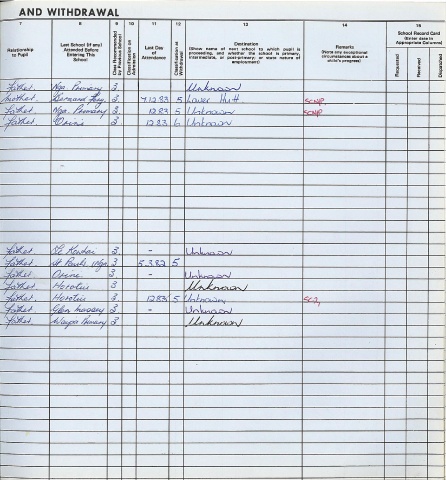 AND WITHDRAWAL
7 8 9 10 11 12 13 14 15
Relationship to Pupil
Last School (if any) Attended Before Entering This School
Class Recommended by Previous School
Classification on Admission
Last Day of Attendance
Classification at Withdrawal
Destination
(Show name of next school to which pupil is proceeding, and whether the school is primary, intermediate, or post-primary; or state nature of employment)
Remarks
(Note any exceptional circumstances about a child's progress)
School Record Card
(Enter date in Appropriate Columns)
Requested
Received
Dispatched
Father. Nga. Primary 3 Unknown
Mother. 3 7.12.83 5 Lower Hutt
Father. Nga. Primary 3 12.83 5 Unknown
Father. Orini 3 12.83 6 Unknown
Father. 3 - Unknown
Father. St Pauls 3 5.3.82 5
Father. Orini 3 - Unknown
Father. Horotiu 3 Unknown
Father. Horotiu 3 12.83 5 Unknown
Father. Glen Massey 3 - Unknown
Father. Primary 3 Unknown